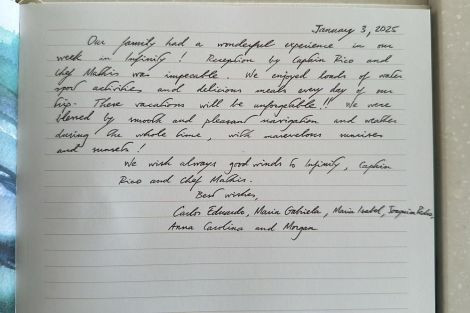 January 3, 2025
Our family had a wonderful experience in our
week in Infinity! Reception by Captain Rico and
Chef Mathis was impecable. We enjoyed loads of water
sport activities and delicious meals every day of our
trip. These vacations will be unforgettable!! We were
blessed by smooth and pleasant navigation and weather
during the whole time, with marvelous sunrises
and sunsets!
We wish always good winds to Infinity, Captain
Rico and Chef Mathis.
Best wishes,
Carlos Eduardo, Maria Gabriela, Maria Isabel, Joaquim Pedro,
Anna Carolina and Morgan